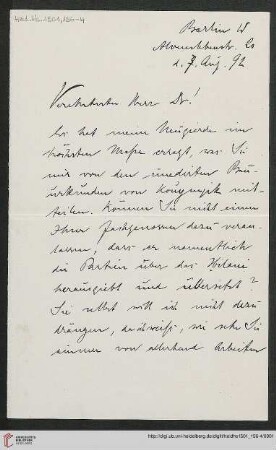 Berlin W
Alvenslebenstr.
d. 7. Aug. 92
Verehrtester Herr Dr!
Es hat meine Neugierde im
höchsten Maße erregt, was Sie
mir von den inedierten Bau-
urkunden von Kouyunjik mit-
teilen. Können Sie nicht einen
Ihrer Fachgenossen dazu veran-
lassen, dass er namentlich
die Partien über das Hilani
herausgiebt und übersetzt?
Sie selbst will ich nicht dazu
drängen, da ich weiß, wie sehr Sie
immer von allerhand Arbeiten